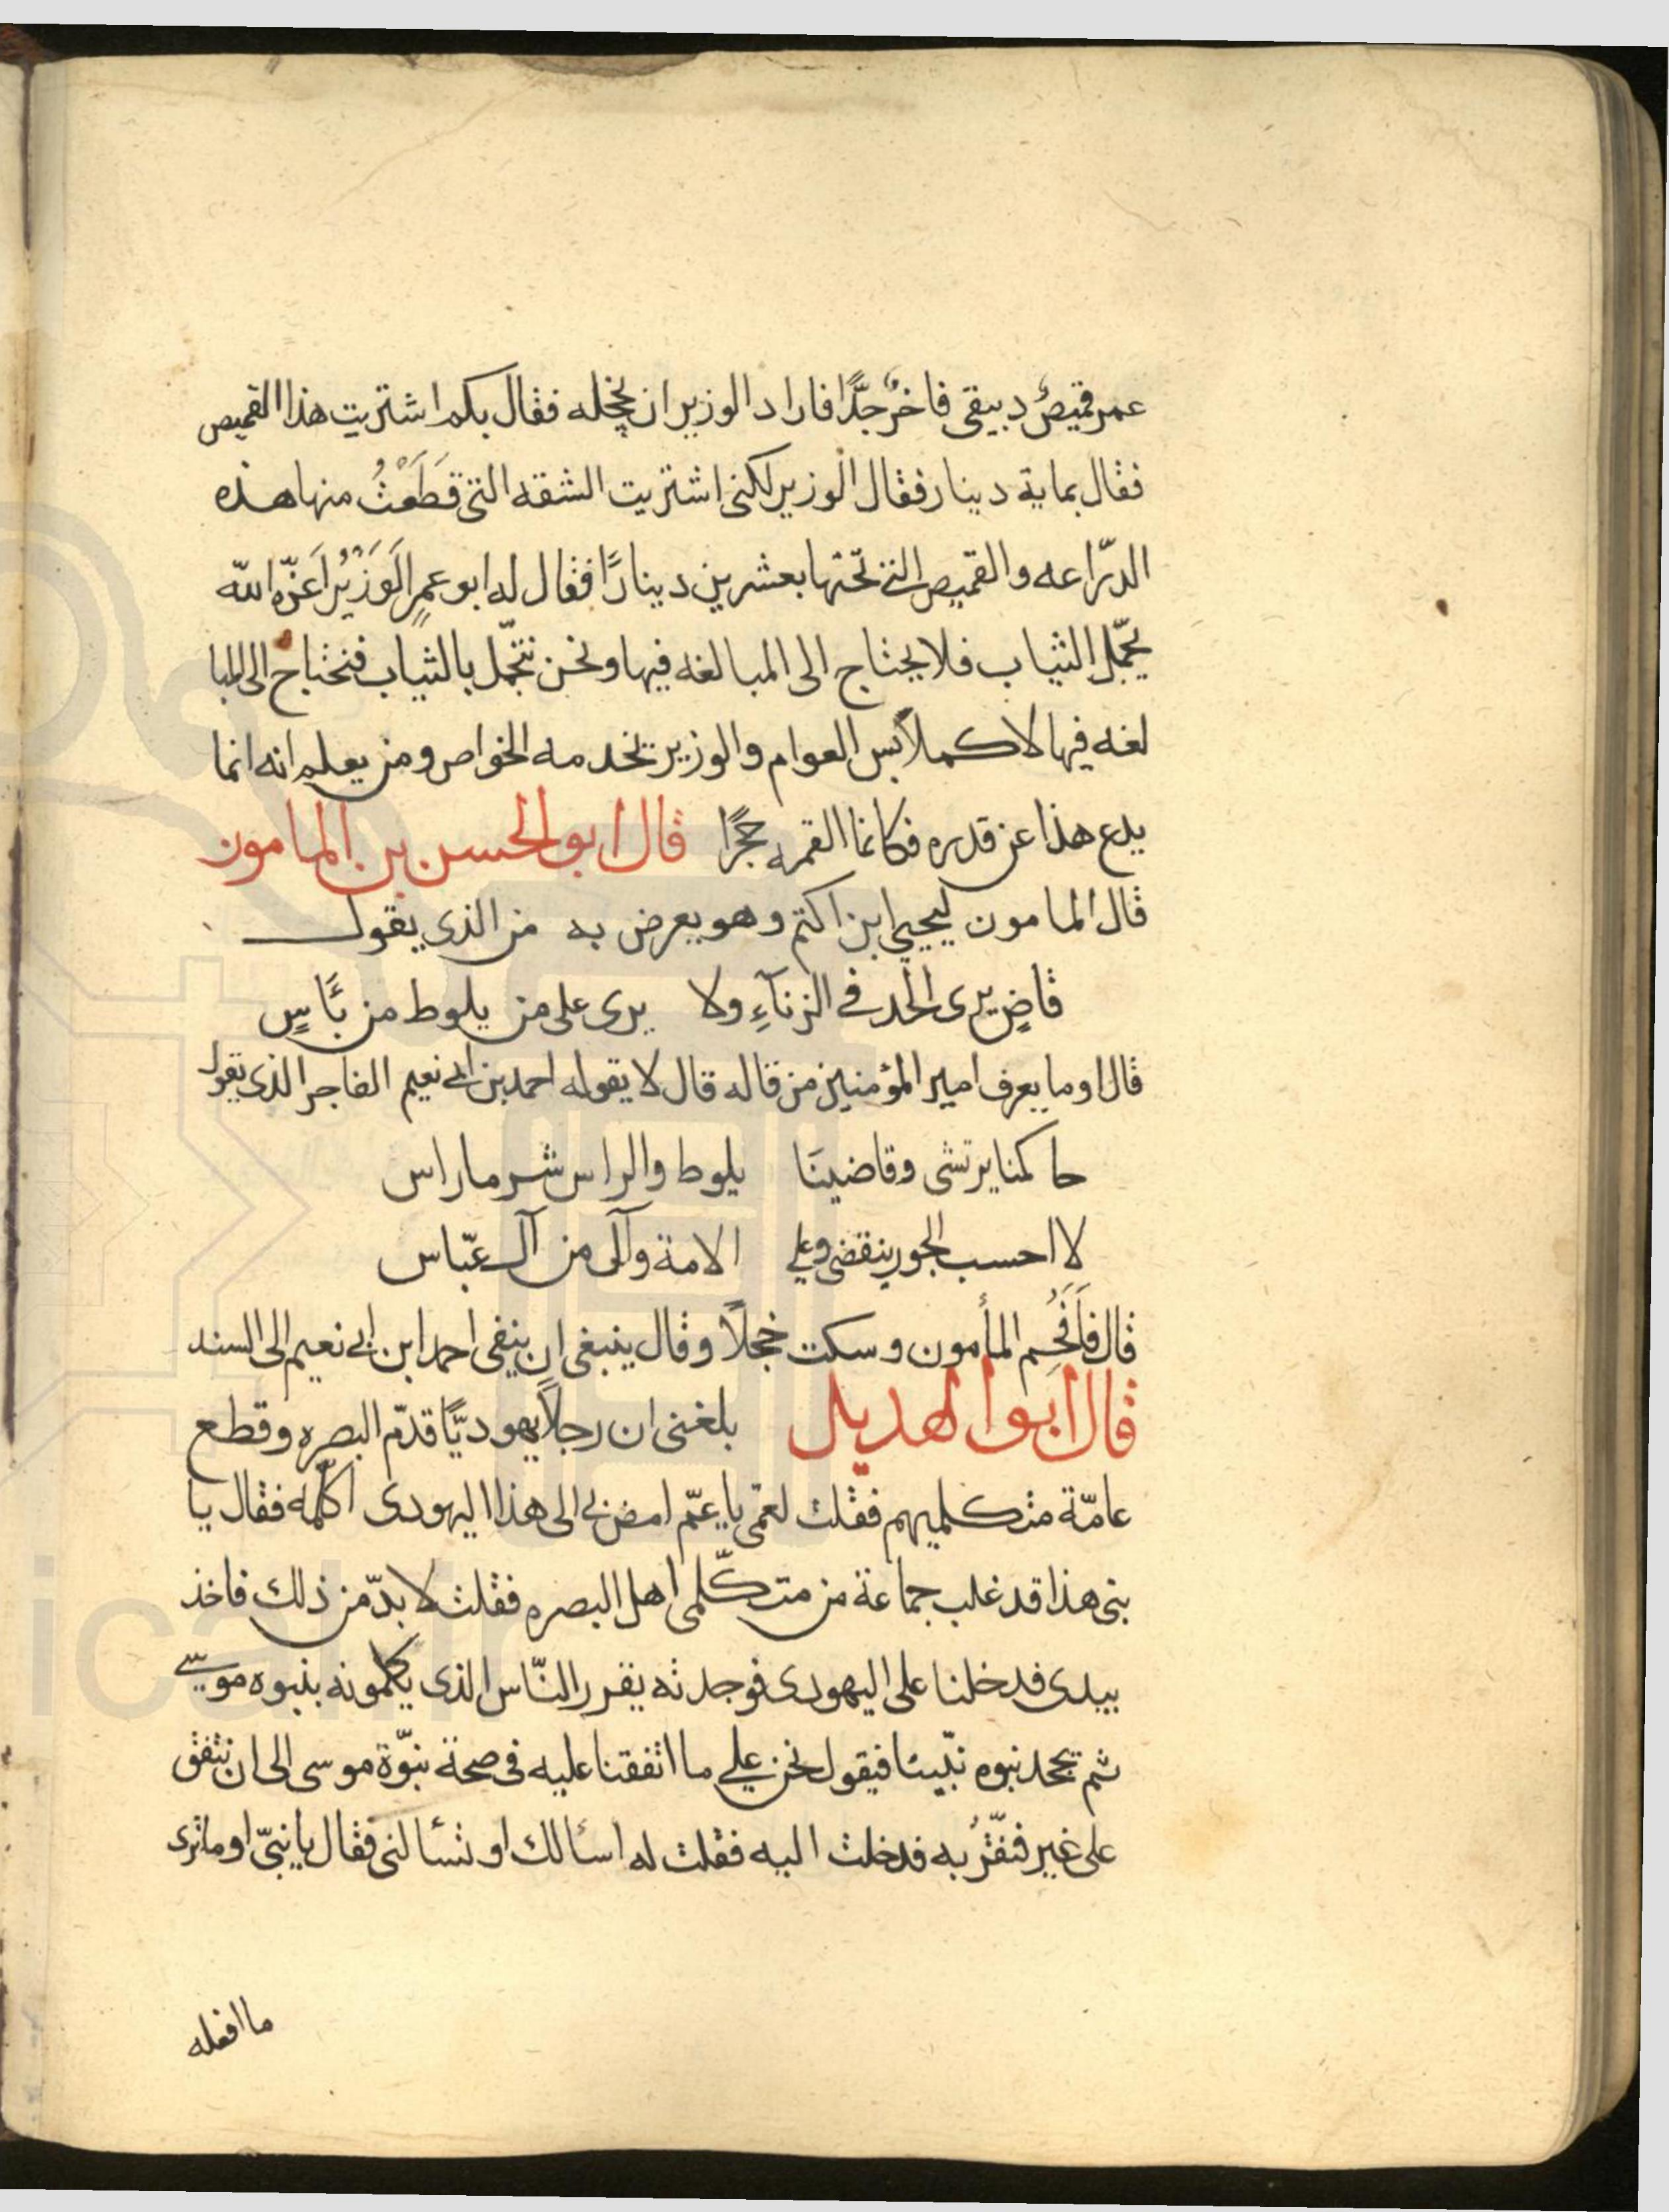 عمر قميصٌ دبيقى فاخرٌ جدًّا فاراد الوزير ان يخجله فقال بكم اشتريت هذا القميص
فقال بماية دينار فقال الوزير لكنى اشتريت الشقه التى قَطَعْتُ منها هذه
الدّراعه والقميص التى تحتها بعشرين دينارًا فقال له ابو عمرٍ الوَزيْرُ اَعَزّه الله
يجمّل الثياب فلا يحتاج الى المبالغه فيها ونحن نتجمّل بالثياب فنحتاج الى المبا
لغه فيها لاكملاًبس العوام والوزير تخدمه الخواص ومن يعلم انه انما
يدع هذا عن قدره فكانما القمه حجرًا قال ابو الحسن بن المامون
قال المامون ليحيى ابن اكتم وهو يعرض به من الذى يقول
قاضٍ يرى الحد في الزنآءِ ولا يرى على من يلوط من بَأسٍ
قال او ما يعرف امير المؤمنين من قاله قال لا يقوله احمد بن ابى نعيم الفاجر الذى يقول
حاكمنا يرتشى وقاضينَا يلوط والراس شر ما راس
لا احسب الجور ينقضى وعلى الامة وآلى من آل عبّاس
قال فَاَفْحُم المأمون وسكت خجلاً وقال ينبغى ان ينفى احمد ابن ابى نعيم الى السند
قال ابو الهديل بلغنى ان رجلاً يهوديًّا قدّم البصره وقطع
عامّة متكلميهم فقلت لعمّى يا عمّ امض بى الى هذا اليهودى اكلّمه فقال يا
بنى هذا قد غلب جماعة من متكلّمى اهل البصره فقلت لا بدّ من ذلك فاخذ
بيدى فدخلنا على اليهودى فوجدته يقرر النّاس الذى يكلمونه بنبوه موسى
ثم يجحد نبوه نبّينا فيقول نحن على ما اتفقنا عليه فى صحة نبّوة موسى الى ان نتفق
على غير فنقّرُ به فدخلت اليه فقلت له اسئالك او تسئالنى فقال يا بنىّ او ما ترى
ما افعله